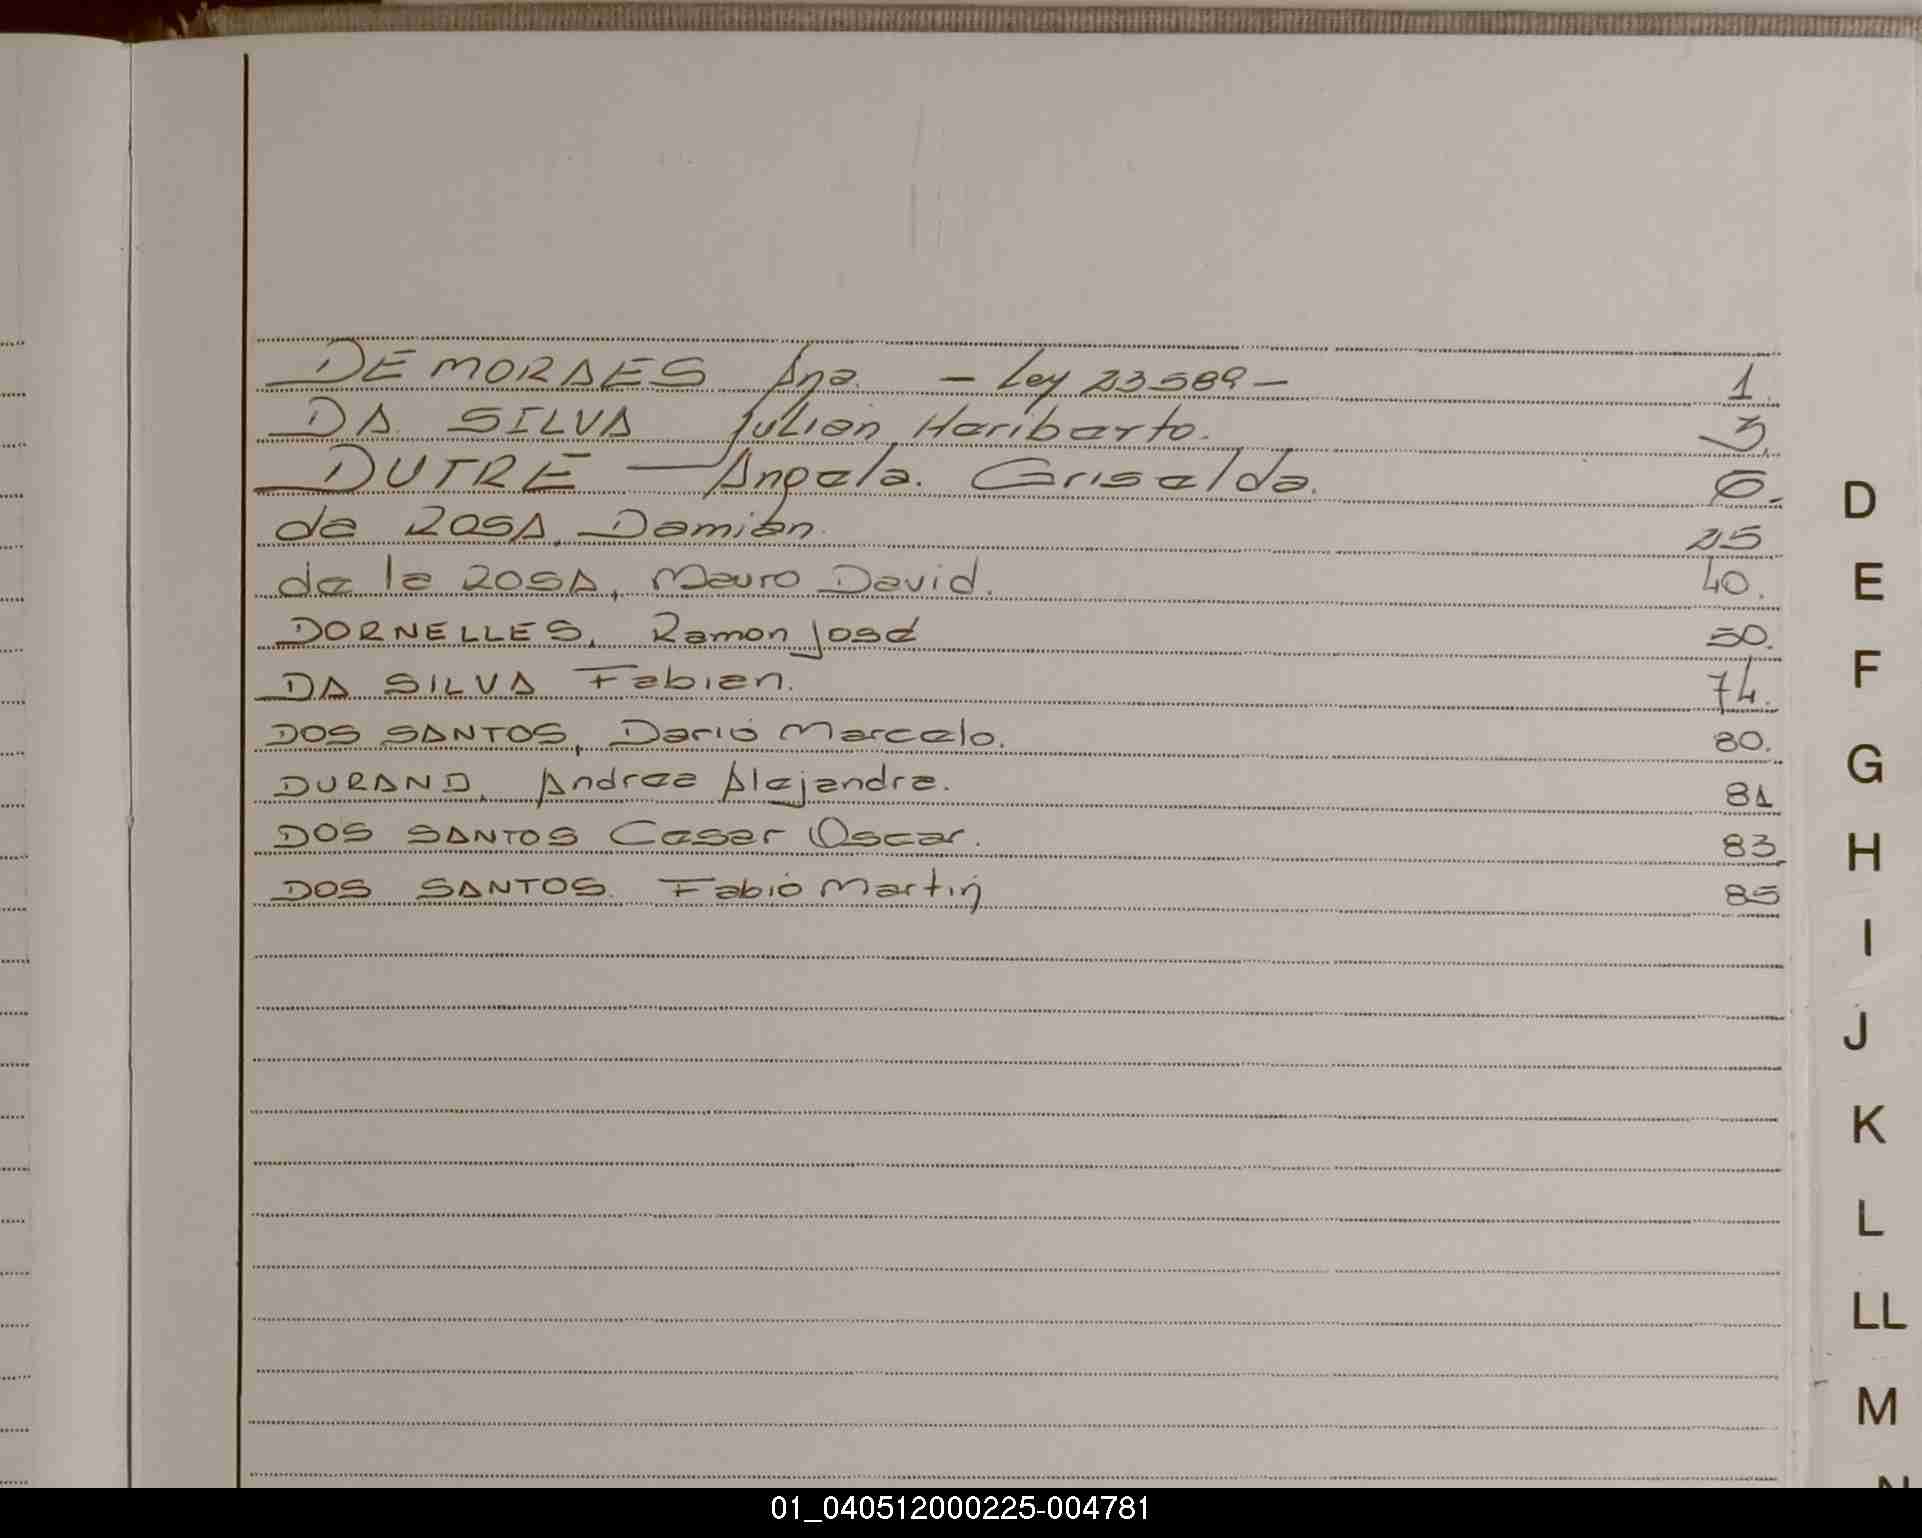 DE MORAES Ana. - Ley 23589 - 1.
DA SILVA Julian Heriberto. 3.
DUTRE — Angela. Griselda. 6.
de ROSA, Damián. 25
de la ROSA, Mauro David. 40.
DORNELLES, Ramon José 50.
DA SILVA Fabian. 74.
DOS SANTOS, Dario Marcelo. 80.
DURAND, Andrea Alejandra. 81
DOS SANTOS Cesar Oscar. 83
DOS SANTOS. Fabio Martin 85
D
E
F
G
H
I
J
K
L
LL
M
N
01_040512000225-004781